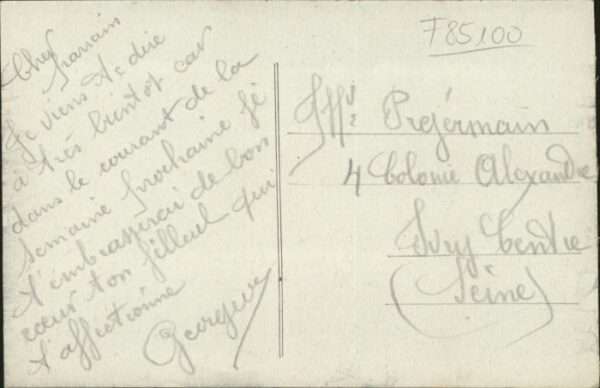 Cher Parrain
Je viens te dire
à très bientôt car
dans le courant de la
semaine prochaine je
t'embrasserai de bon
cœur ton filleul qui
t'affectionne
F85100
Préjermain
4 Colonie Alexandre
Ivry Centre
(Seine)